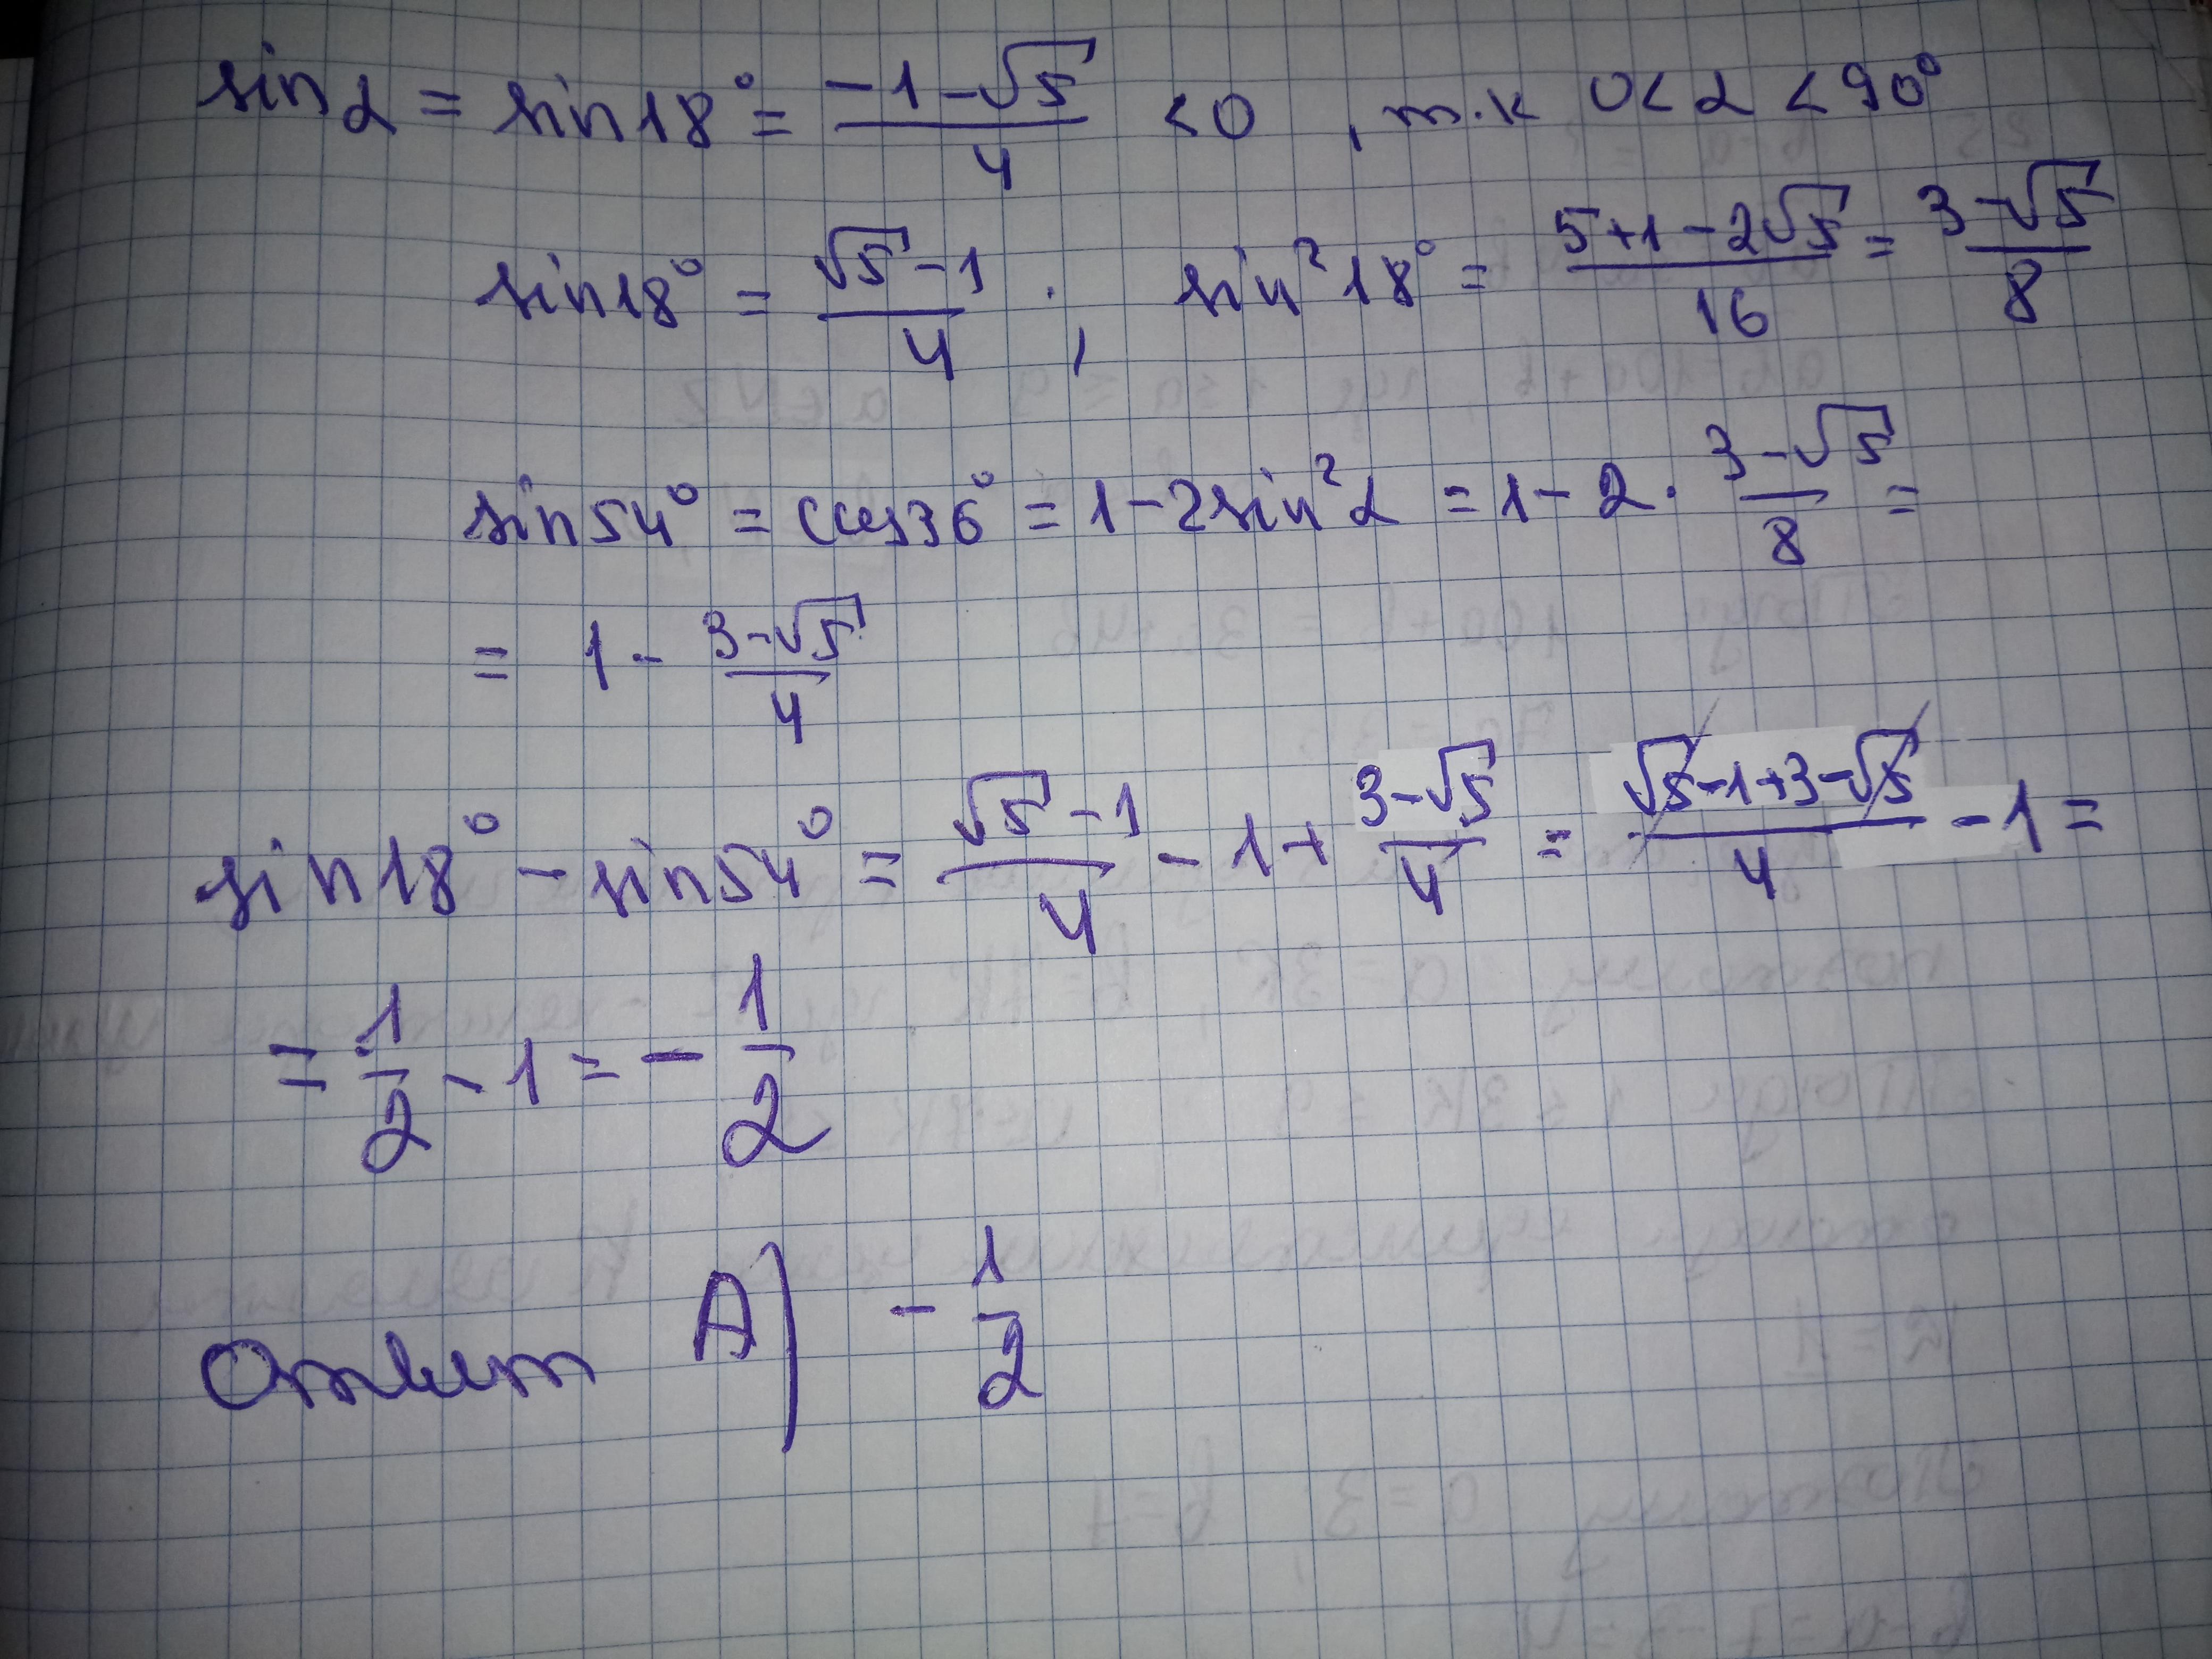 sin α = sin 18° = (-1-√5)/4 < 0, т.к 0 < α < 90°
sin 18° = (√5-1)/4; sin² 18° = (5+1-2√5)/16 = (3-√5)/8
sin 54° = cos 36° = 1-2sin² α = 1-2·(3-√5)/8 =
= 1 - (3-√5)/4
sin 18° - sin 54° = (√5-1)/4 - 1 + (3-√5)/4 = (√5-1+3-√5)/4 - 1 =
= 1/2 - 1 = - 1/2
Ответ А) - 1/2